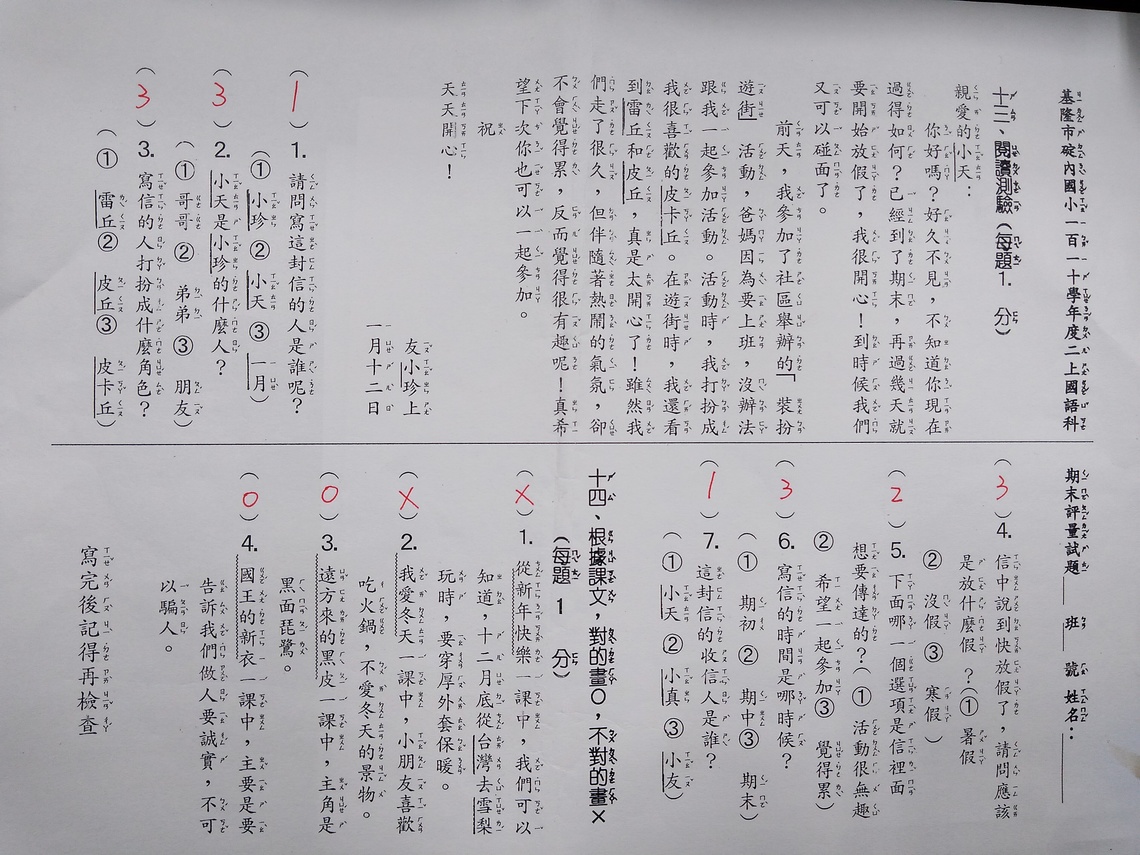 基隆市碇內國小一百一十學年度二上國語科
期末評量試題 班 號 姓名：
十三、閱讀測驗（每題1. 分）
親愛的小天：
你好嗎？好久不見，不知道你現在
過得如何？已經到了期末，再過幾天就
要開始放假了，我很開心！到時候我們
又可以碰面了。
前天，我參加了社區舉辦的「裝扮
遊街」活動，爸媽因為要上班，沒辦法
跟我一起參加活動。活動時，我打扮成
我很喜歡的皮卡丘。在遊街時，我還看
到雷丘和皮丘，真是太開心了！雖然我
們走了很久，但伴隨著熱鬧的氣氛，卻
不會覺得累，反而覺得很有趣呢！真希
望下次你也可以一起參加。
祝
天天開心！
友小珍上
一月十二日
（1）1. 請問寫這封信的人是誰呢？
（① 小珍 ② 小天 ③ 一月）
（3）2. 小天是小珍的什麼人？
（① 哥哥 ② 弟弟 ③ 朋友）
（3）3. 寫信的人打扮成什麼角色？
（① 雷丘② 皮丘③ 皮卡丘）
（3）4. 信中說到快放假了，請問應該
是放什麼假 ？（① 暑假
② 沒假 ③ 寒假）
（2）5. 下面哪一個選項是信裡面
想要傳達的？（① 活動很無趣
② 希望一起參加③ 覺得累）
（3）6. 寫信的時間是哪時候？
（① 期初 ② 期中③ 期末）
（1）7. 這封信的收信人是誰？
（① 小天 ② 小真 ③ 小友）
十四、根據課文，對的畫○，不對的畫×
（每題 1 分）
（×）1. 從新年快樂一課中，我們可以
知道，十二月底從台灣去雪梨
玩時，要穿厚外套保暖。
（×）2. 我愛冬天一課中，小朋友喜歡
吃火鍋，不愛冬天的景物。
（○）3. 遠方來的黑皮一課中，主角是
黑面琵鷺。
（○）4. 國王的新衣一課中，主要是要
告訴我們做人要誠實，不可
以騙人。
寫完後記得再檢查